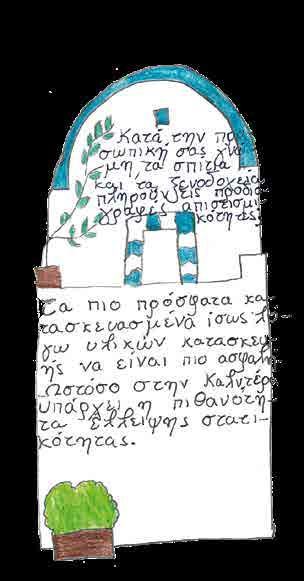 Κατά την προ-
σωπική σας γνώ-
μη, τα σπίτια
και τα ξενοδοχεία
πληρούν τις προδια-
γραφές αντισεισμι-
κότητας;
Τα πιο πρόσφατα κα-
τασκευασμένα ίσως λό-
γω υλικών κατασκευ-
ής να είναι πιο ασφαλή.
Ωστόσο στην Καλντέρα
υπάρχει η πιθανότη-
τα έλλειψης στατι-
κότητας.